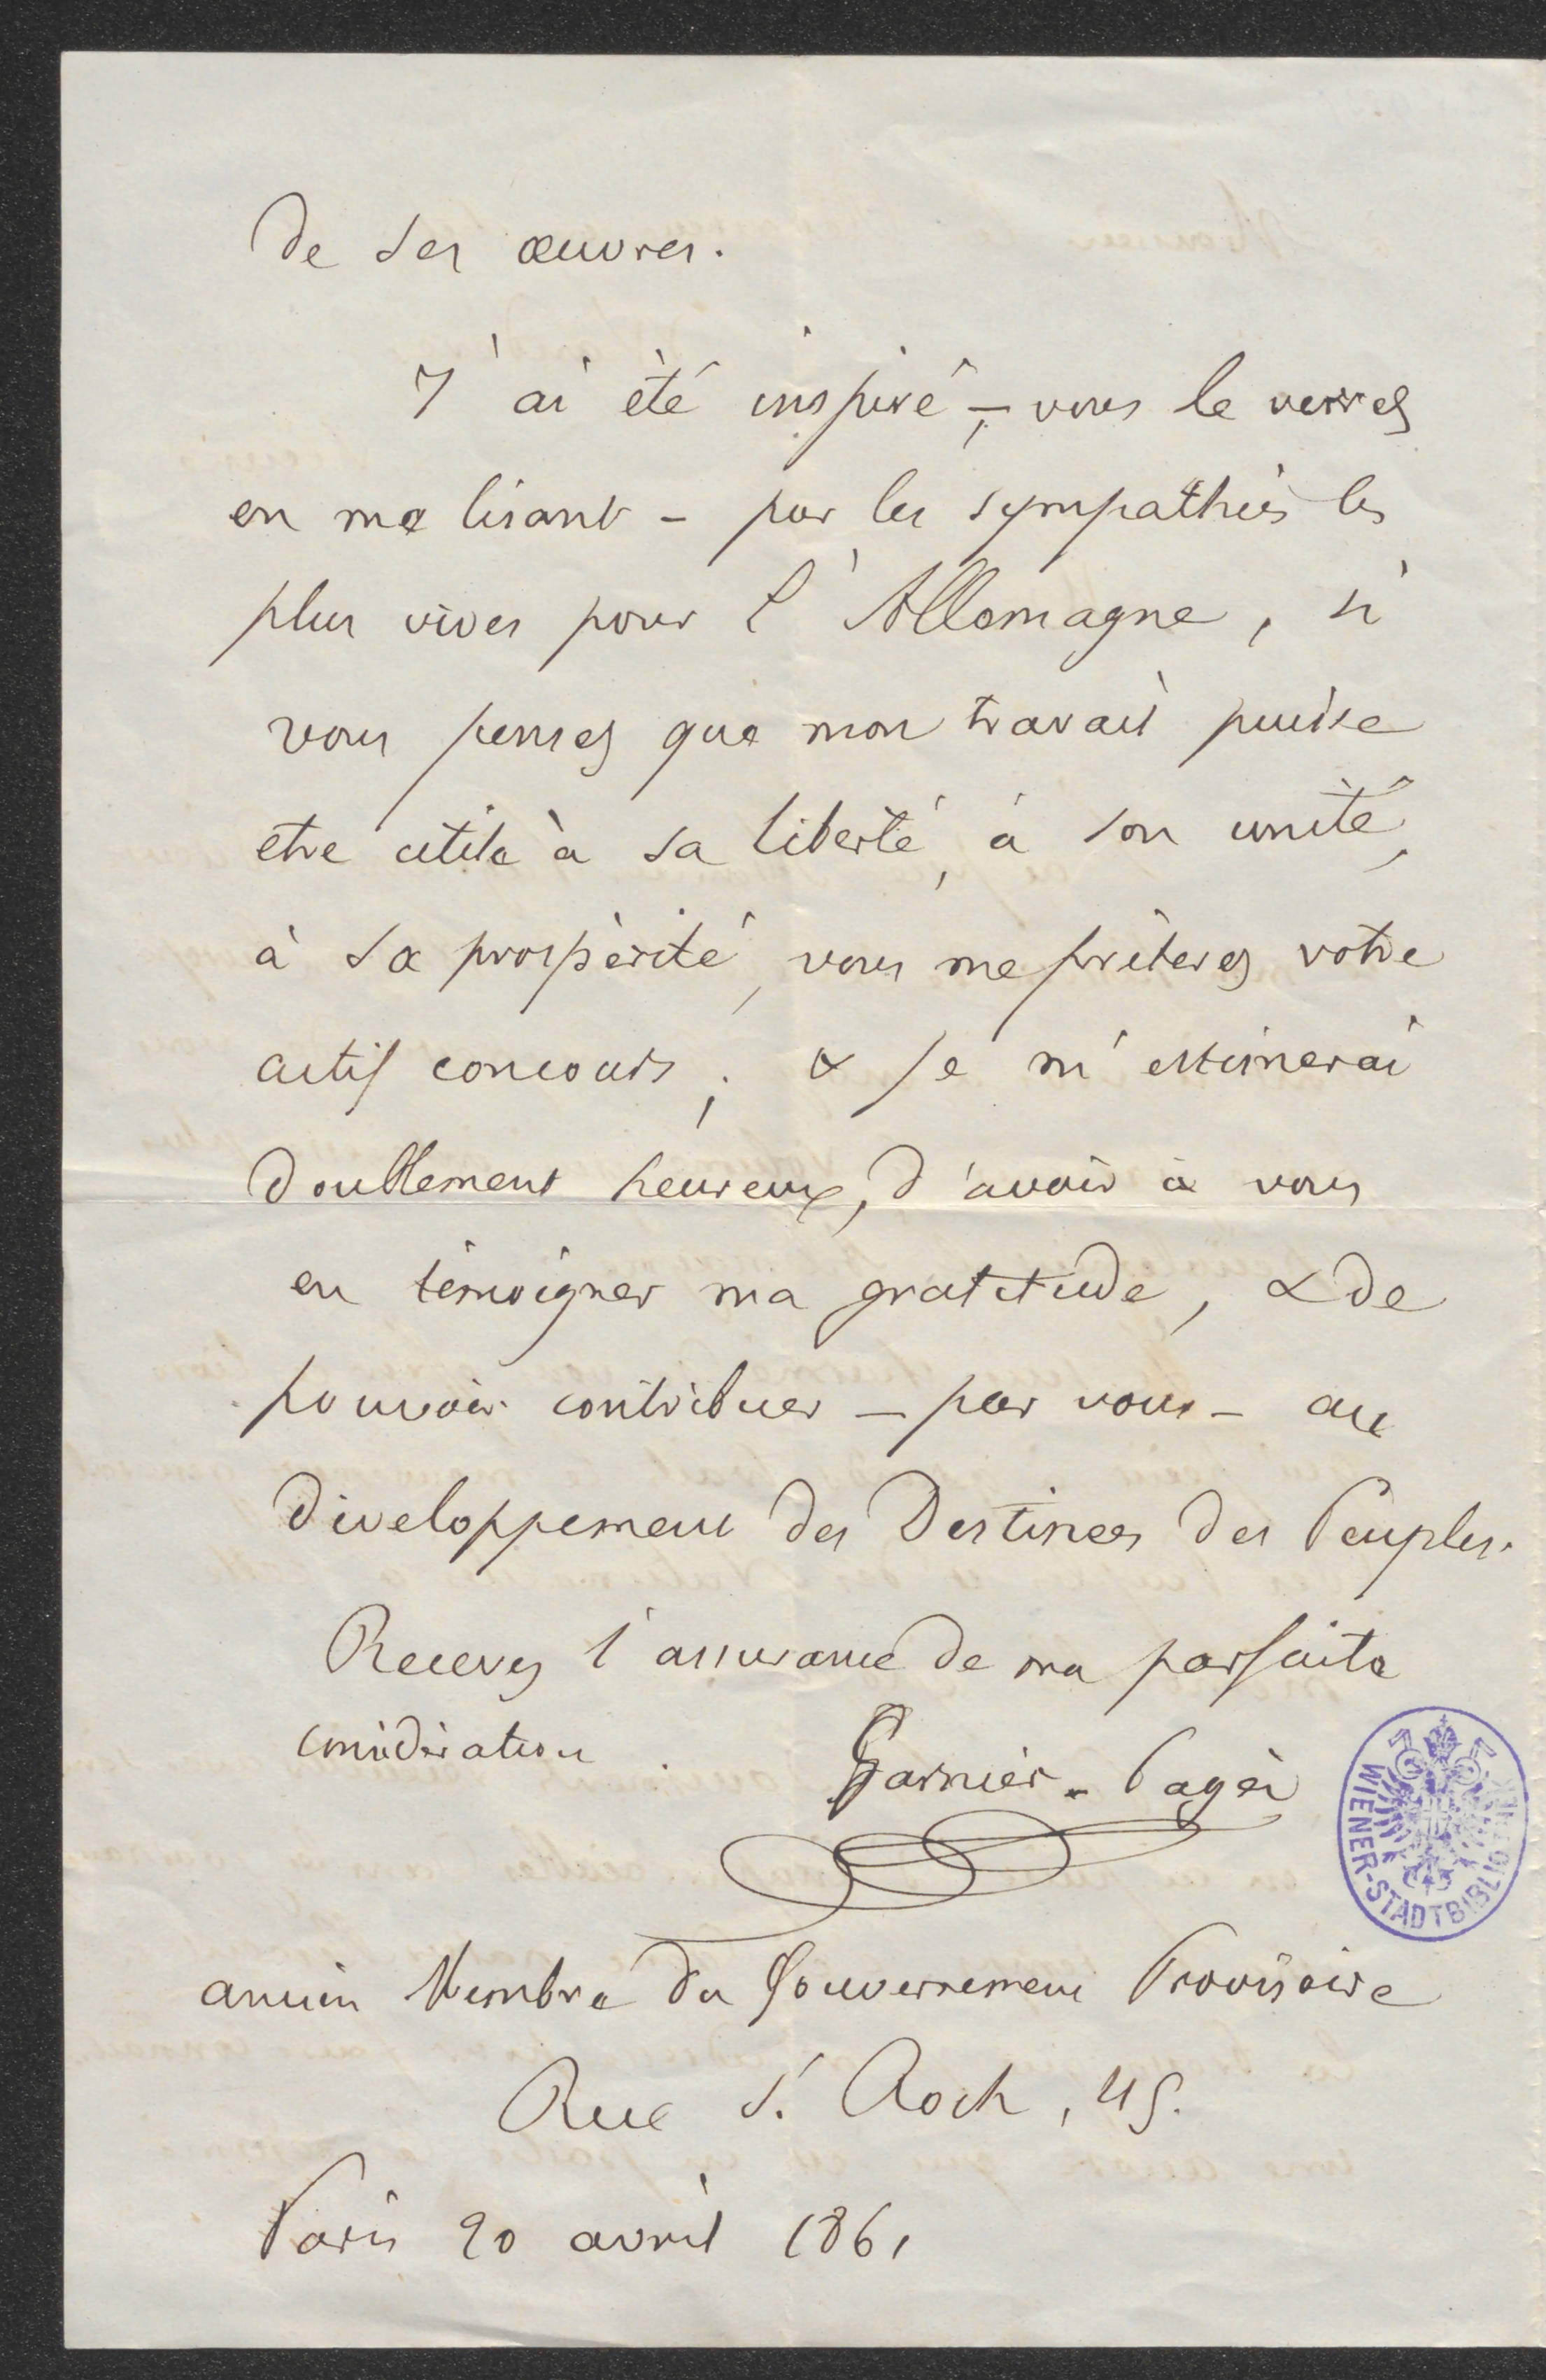 de ses œuvres.
J'ai été inspiré, – vous le verrez
en me lisant – par les sympathies les
plus vives pour l'Allemagne, si
vous pensez que mon travail puisse
etre utile à sa liberté, à son unité,
à sa prospérité, vous me prêterez votre
actif concours; & je m'estimerai
doublement heureux, d'avoir à vous
en témoigner ma gratitude, & de
pouvoir contribuer – par vous – au
développement des Destinées des Peuples.
Recevez l'assurance de ma parfaite
considération.
Garnier-Pagès
WIENER-STADTBIBLIOTHEK
ancien Membre du Gouvernement Provisoire
Rue St. Roch, 45.
Paris 20 avril 1861